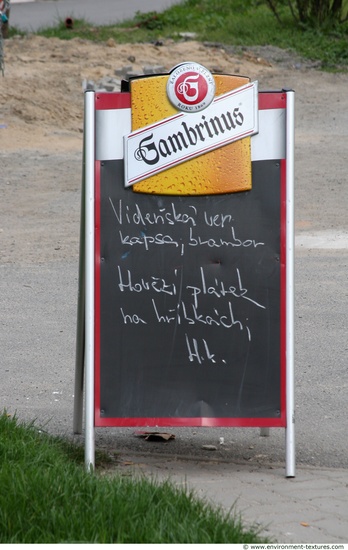 Gambrinus
Vídeňská vep.
kapsa, brambor
Hovězí plátek
na hříbkách,
H.k.
© www.environment-textures.com